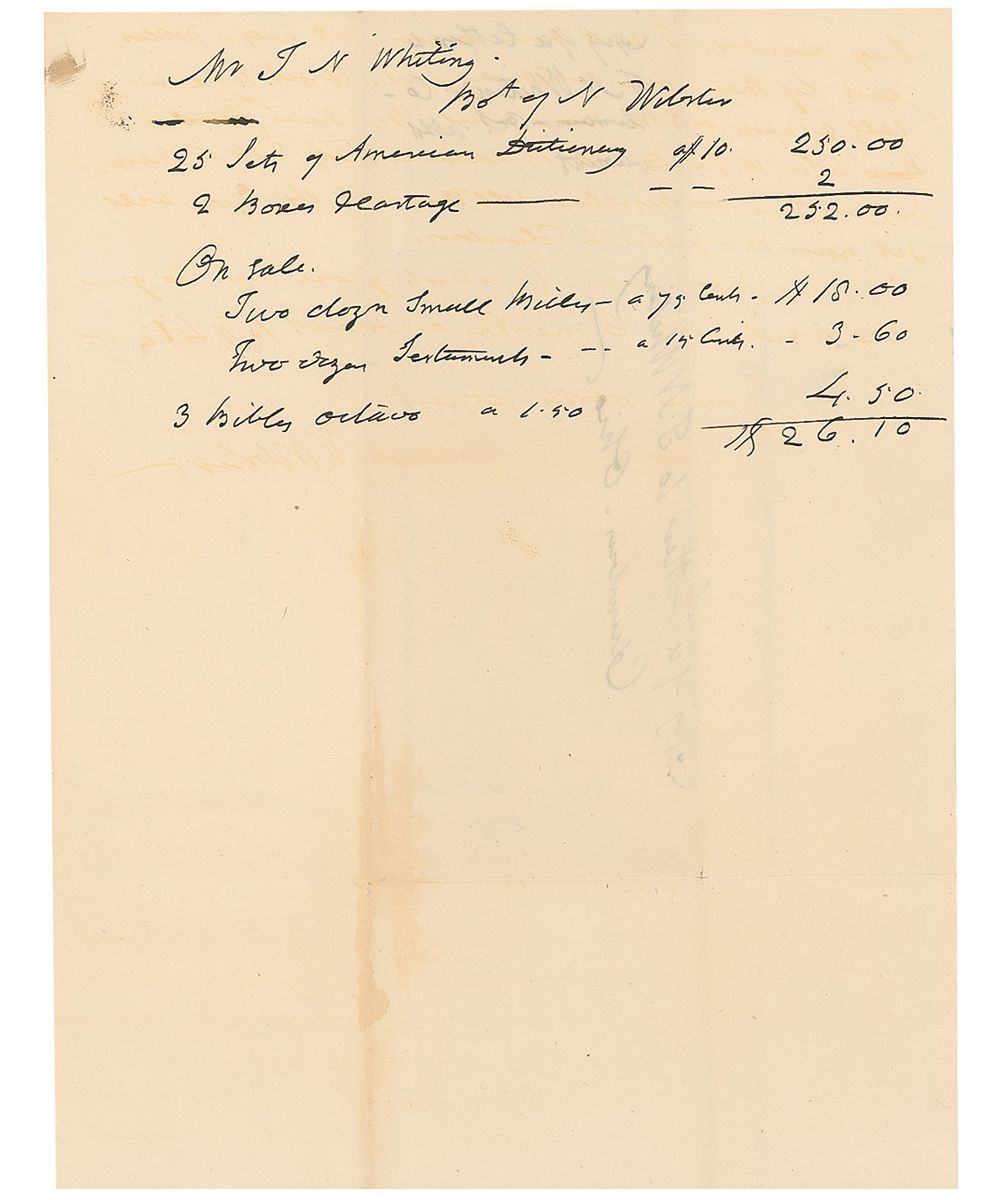 Mr I N Whiting.
Bot of N Webster
25 Sets of American Dictionary a $10. 250.00
2 Boxes & Cartage 2
252.00.
On sale.
Two dozn Small Bibles - a 75 Cents - $18.00
Two dozen Testaments - -- a 15 Cents. - 3.60
3 Bibles octavo a 1.50 4.50.
$26.10